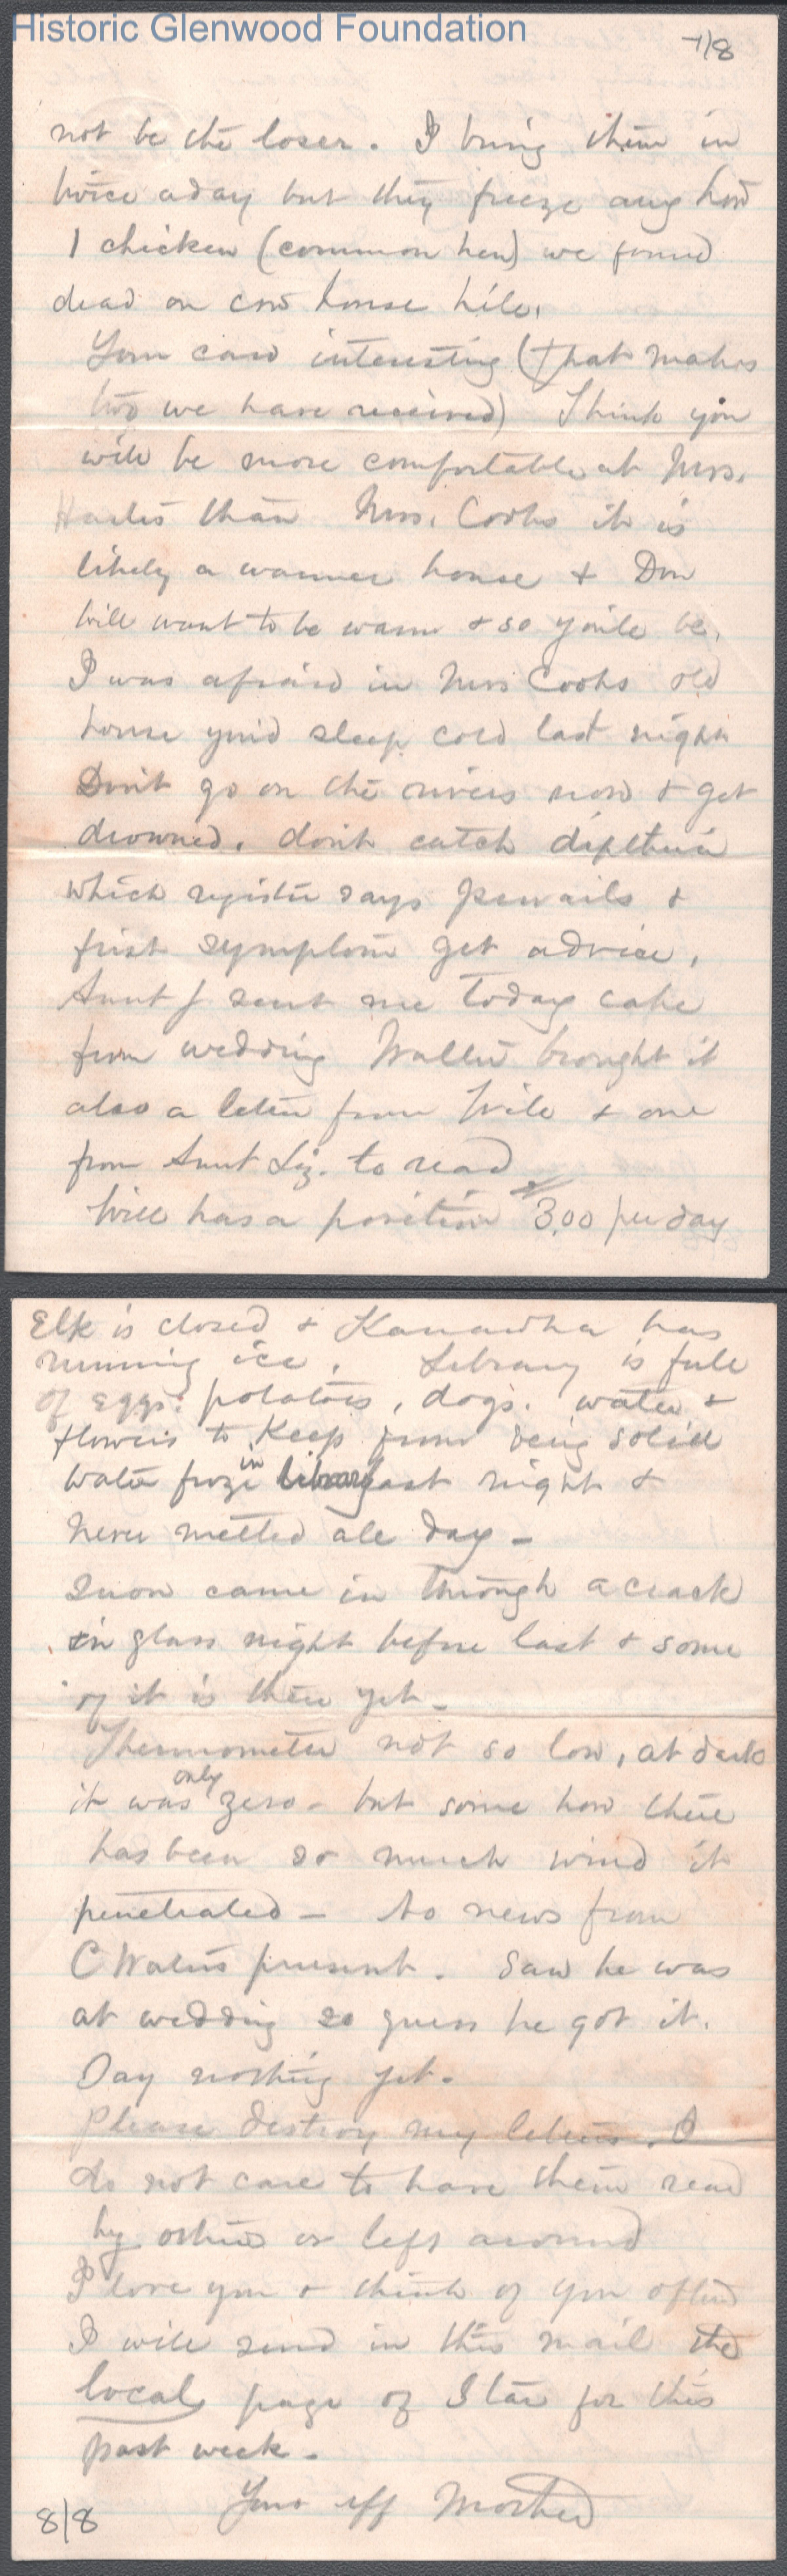 Historic Glenwood Foundation
7/8
not be the loser. I bring them in
twice a day but they freeze any how
1 chicken (common hen) we found
dead on cow house hile.
Your card interesting (that makes
two we have received) Think you
will be more comfortable at Mrs.
than Mrs. Cooks it is
likely a warmer house & Don
will want to be warm & so you'le be.
I was afraid in Mrs Cooks old
house you'd sleep cold last night
Don't go on the rivers now & get
drowned. don't catch diptheria
which register says prevails &
first symptom get advice.
Aunt J sent me today cake
from wedding Walter brought it
also a letter from Will & one
from Aunt Liz. to read
Will has a position 3.00 per day
Elk is closed & Kanawha has
running ice. Library is full
of eggs. potatoes, dogs. water &
flowers to keep from being solid
water froze in library last night &
never melted all day -
Snow came in through a crack
in glass night before last & some
of it is there yet -
Thermometer not so low, at dark
it was only zero - but some how there
has been so much wind it
penetrated - No news from
C present. Saw he was
at wedding so guess he got it.
Day nothing yet.
Please destroy my letters. I
do not care to have them read
by others or left around
I love you & think of you often
I will send in this mail the
local page of Star for this
past week -
Your aff Mother
8/8